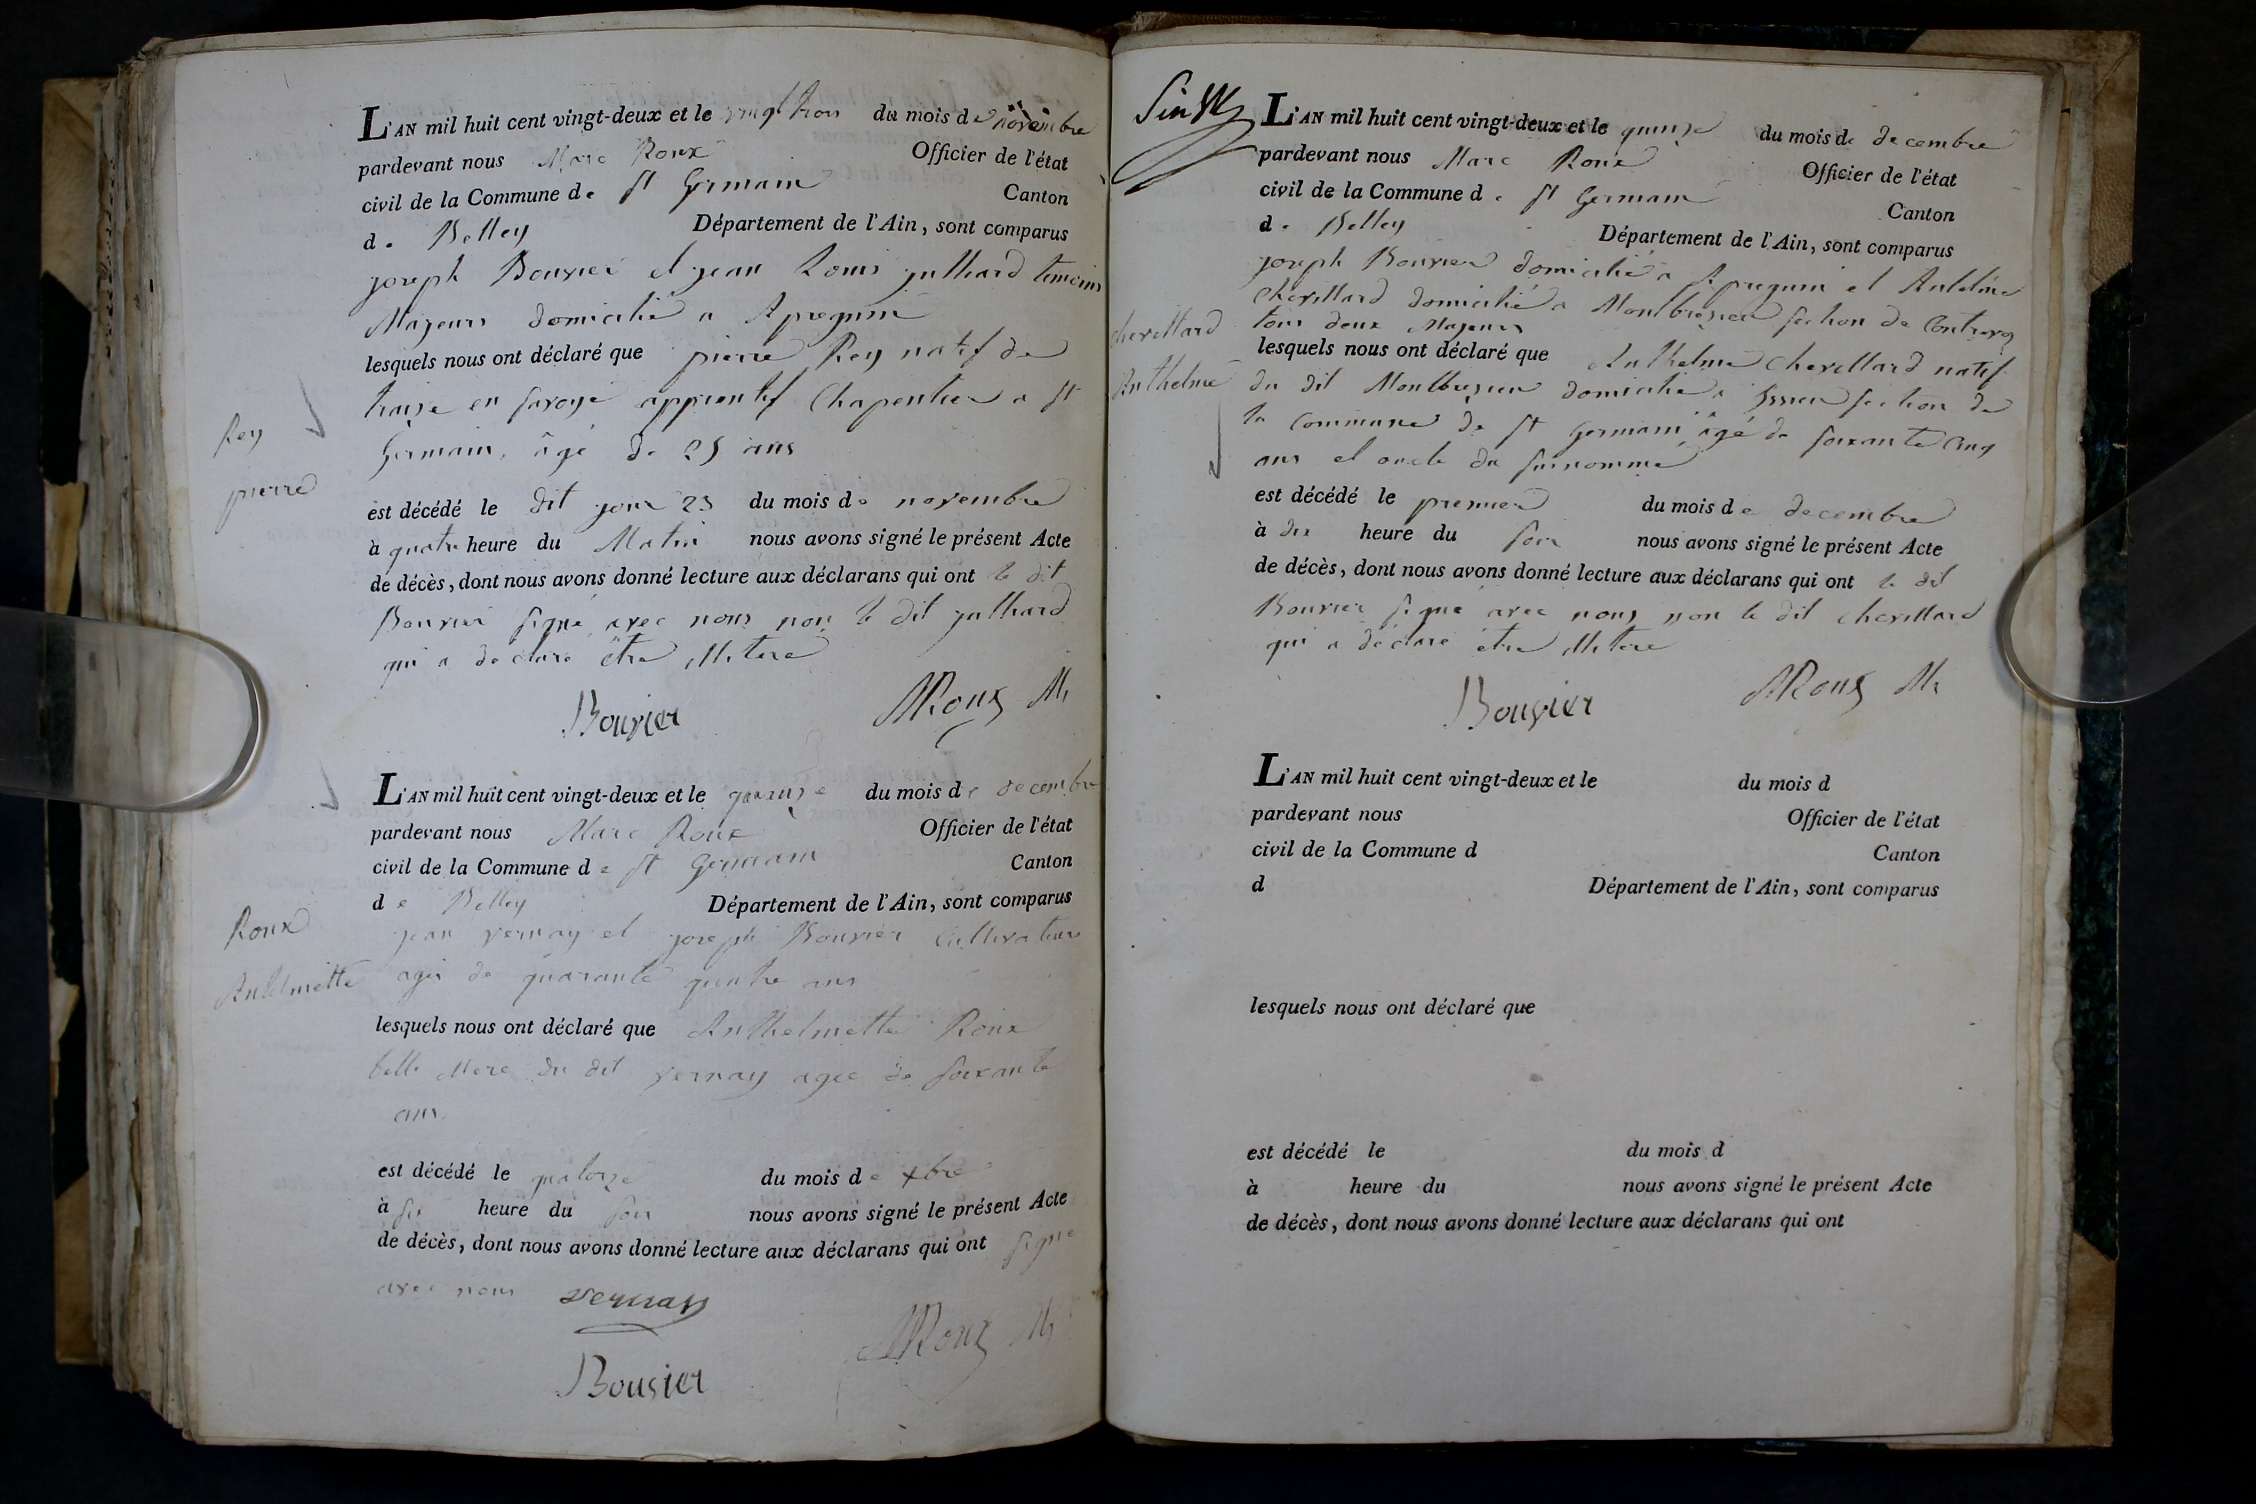 L'AN mil huit cent vingt-deux et le vingt trois du mois de novembre
pardevant nous Marc Roux Officier de l'état
civil de la Commune de St Germain Canton
de Belley Département de l'Ain, sont comparus
joseph Bouvier et jean Louis julliard temoins
Majeurs domicilié a Apregnin
lesquels nous ont déclaré que pierre Rey natif de
traize en savoye apprentif Chapentier a St
Germain, âgé de 25 ans
Rey
pierre
est décédé le dit jour 23 du mois de novembre
à quatre heure du Matin nous avons signé le présent Acte
de décès, dont nous avons donné lecture aux déclarans qui ont le dit
Bouvier signé avec nous non le dit julliard
qui a declaré être illitere
Bouvier MRoux Mr
L'AN mil huit cent vingt-deux et le quinze du mois de decembre
pardevant nous Marc Roux Officier de l'état
civil de la Commune de St Germain Canton
de Belley Département de l'Ain, sont comparus
jean vernay et joseph Bouvier Cultivateurs
agés de quarante quatre ans
Roux
Antelmette
lesquels nous ont déclaré que Anthelmette Roux
belle Mere du dit vernay agée de soixante
ans.
est décédé le quatorze du mois de xbre
à six heure du soir nous avons signé le présent Acte
de décès, dont nous avons donné lecture aux déclarans qui ont signé
avec nous vernay
MRoux Mr
Bouvier
L'AN mil huit cent vingt-deux et le quinze du mois de decembre
pardevant nous Marc Roux Officier de l'état
civil de la Commune de St Germain Canton
de Belley Département de l'Ain, sont comparus
joseph Bouvier domicilié a Apregnin et Antelme
Chevillard domicilié a Montbrezieu section de Contrevoz
tous deux Majeurs
chevillard
Anthelme
lesquels nous ont déclaré que Anthelme Chevillard natif
du dit Montbrezieu domicilié a Essieu section de
la commune de St Germain âgé de soixante cinq
ans et oncle du surnommé
est décédé le premier du mois de decembre
à dix heure du soir nous avons signé le présent Acte
de décès, dont nous avons donné lecture aux déclarans qui ont le dit
Bouvier signé avec nous non le dit chevillard
qui a déclaré être illitere
Bouvier MRoux Mr
L'AN mil huit cent vingt-deux et le du mois d
pardevant nous Officier de l'état
civil de la Commune d Canton
d Département de l'Ain, sont comparus
lesquels nous ont déclaré que
est décédé le du mois d
à heure du nous avons signé le présent Acte
de décès, dont nous avons donné lecture aux déclarans qui ont